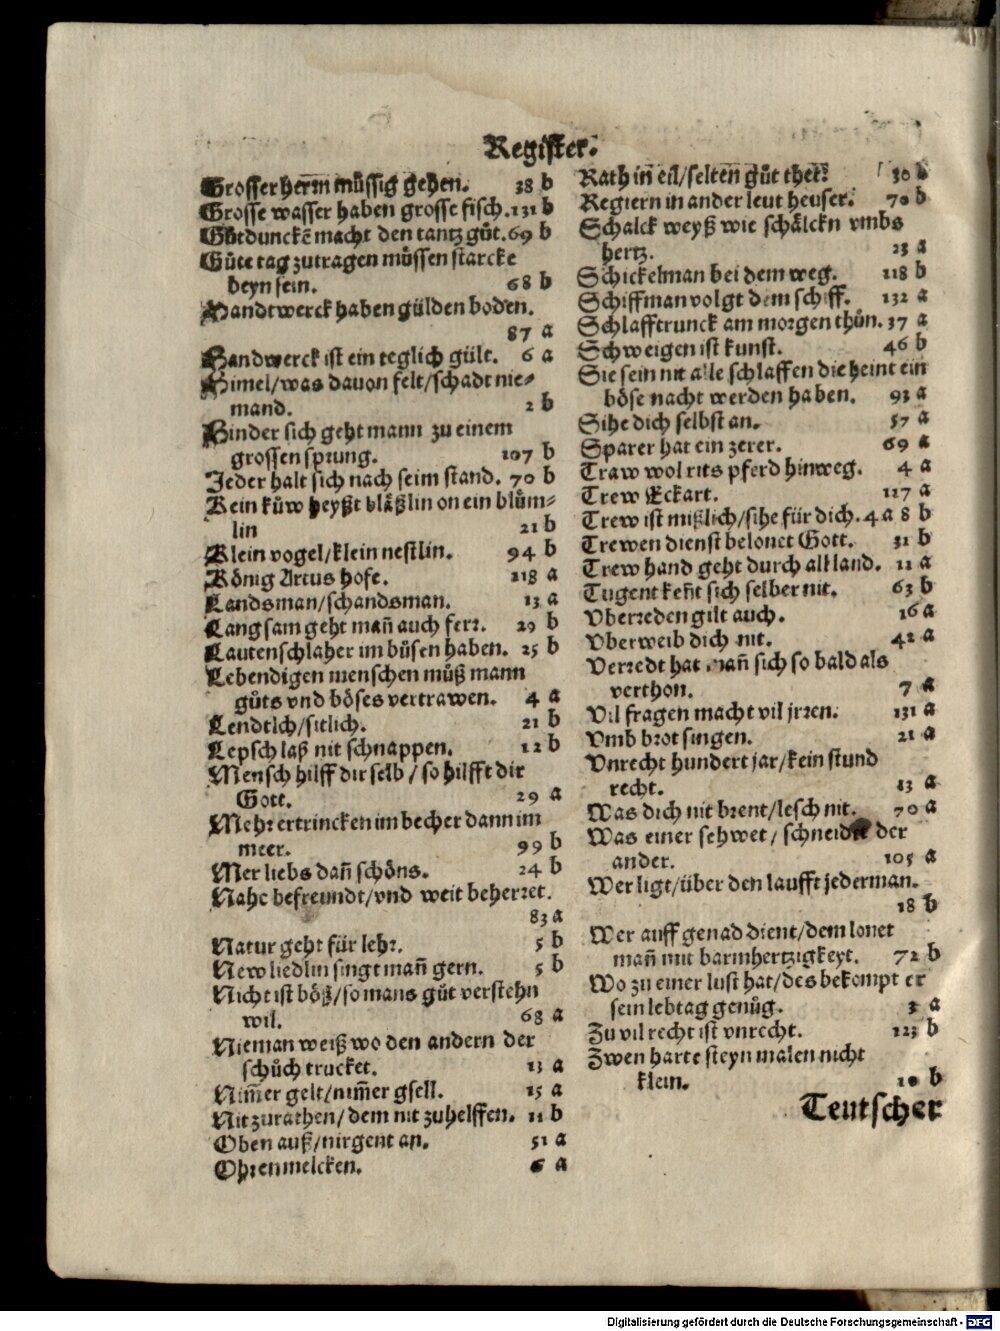 Register.
Grosser herrn müssig gehen. 38 b
Grosse wasser haben grosse fisch. 131 b
Gůtdunckē macht den tantz gůt. 69 b
Gůte tag zutragen müssen starcke
beyn sein. 68 b
Handtwerck haben gülden boden.
87 a
Handwerck ist ein teglich gült. 6 a
Himel/was dauon felt/schadt nie⸗
mand. 2 b
Hinder sich geht mann zu einem
grossen sprung. 107 b
Jeder halt sich nach seim stand. 70 b
Kein kůw heyßt bläßlin on ein blům⸗
lin 21 b
Klein vogel/klein nestlin. 94 b
König Artus hofe. 118 a
Landsman/schandsman. 13 a
Langsam geht mañ auch ferr. 29 b
Lautenschlaher im bůsen haben. 25 b
Lebendigen menschen můß mann
gůts vnd böses vertrawen. 4 a
Lendtlch/sitlich. 21 b
Lepsch laß nit schnappen. 12 b
Mensch hilff dir selb/so hilfft dir
Gott. 29 a
Mehr ertrincken im becher dann im
meer. 99 b
Mer liebs dañ schöns. 24 b
Nahe befreundt/vnd weit beherret.
83 a
Natur geht für lehr. 5 b
New liedlin singt mañ gern. 5 b
Nicht ist böß/so mans gůt verstehn
wil. 68 a
Nieman weiß wo den andern der
schůch trucket. 13 a
Nim̃er gelt/nim̃er gsell. 15 a
Nit zurathen/dem nit zuhelffen. 11 b
Oben auß/nirgent an. 51 a
Ohrenmelcken. 6 a
Rath in eil/selten gůt thet. 30 b
Regiern in ander leut heuser. 70 b
Schalck weyß wie schälckn vmbs
hertz. 23 a
Schickelman bei dem weg. 118 b
Schiffman volgt dem schiff. 132 a
Schlafftrunck am morgen thůn. 37 a
Schweigen ist kunst. 46 b
Sie sein nit alle schlaffen die heint ein
böse nacht werden haben. 93 a
Sihe dich selbst an. 57 a
Sparer hat ein zerer. 69 a
Traw wol rits pferd hinweg. 4 a
Trew Eckart. 117 a
Trew ist mißlich/sihe für dich. 4 a 8 b
Trewen dienst belonet Gott. 31 b
Trew hand geht durch alle land. 11 a
Tugent keñt sich selber nit. 63 b
Vberreden gilt auch. 16 a
Vberweib dich nit. 42 a
Verredt hat mañ sich so bald als
verthon. 7 a
Vil fragen macht vil jrren. 131 a
Vmb brot singen. 21 a
Vnrecht hundert jar/kein stund
recht. 13 a
Was dich nit brent/lesch nit. 70 a
Was einer sehwet/schneidet der
ander. 105 a
Wer ligt/über den laufft jederman.
18 b
Wer auff genad dient/dem lonet
mañ mit barmhertzigkeyt. 72 b
Wo zu einer lust hat/des bekompt er
sein lebtag genůg. 3 a
Zu vil recht ist vnrecht. 123 b
Zwen harte steyn malen nicht
klein. 10 b
Teutscher
Digitalisierung gefördert durch die Deutsche Forschungsgemeinschaft - DFG